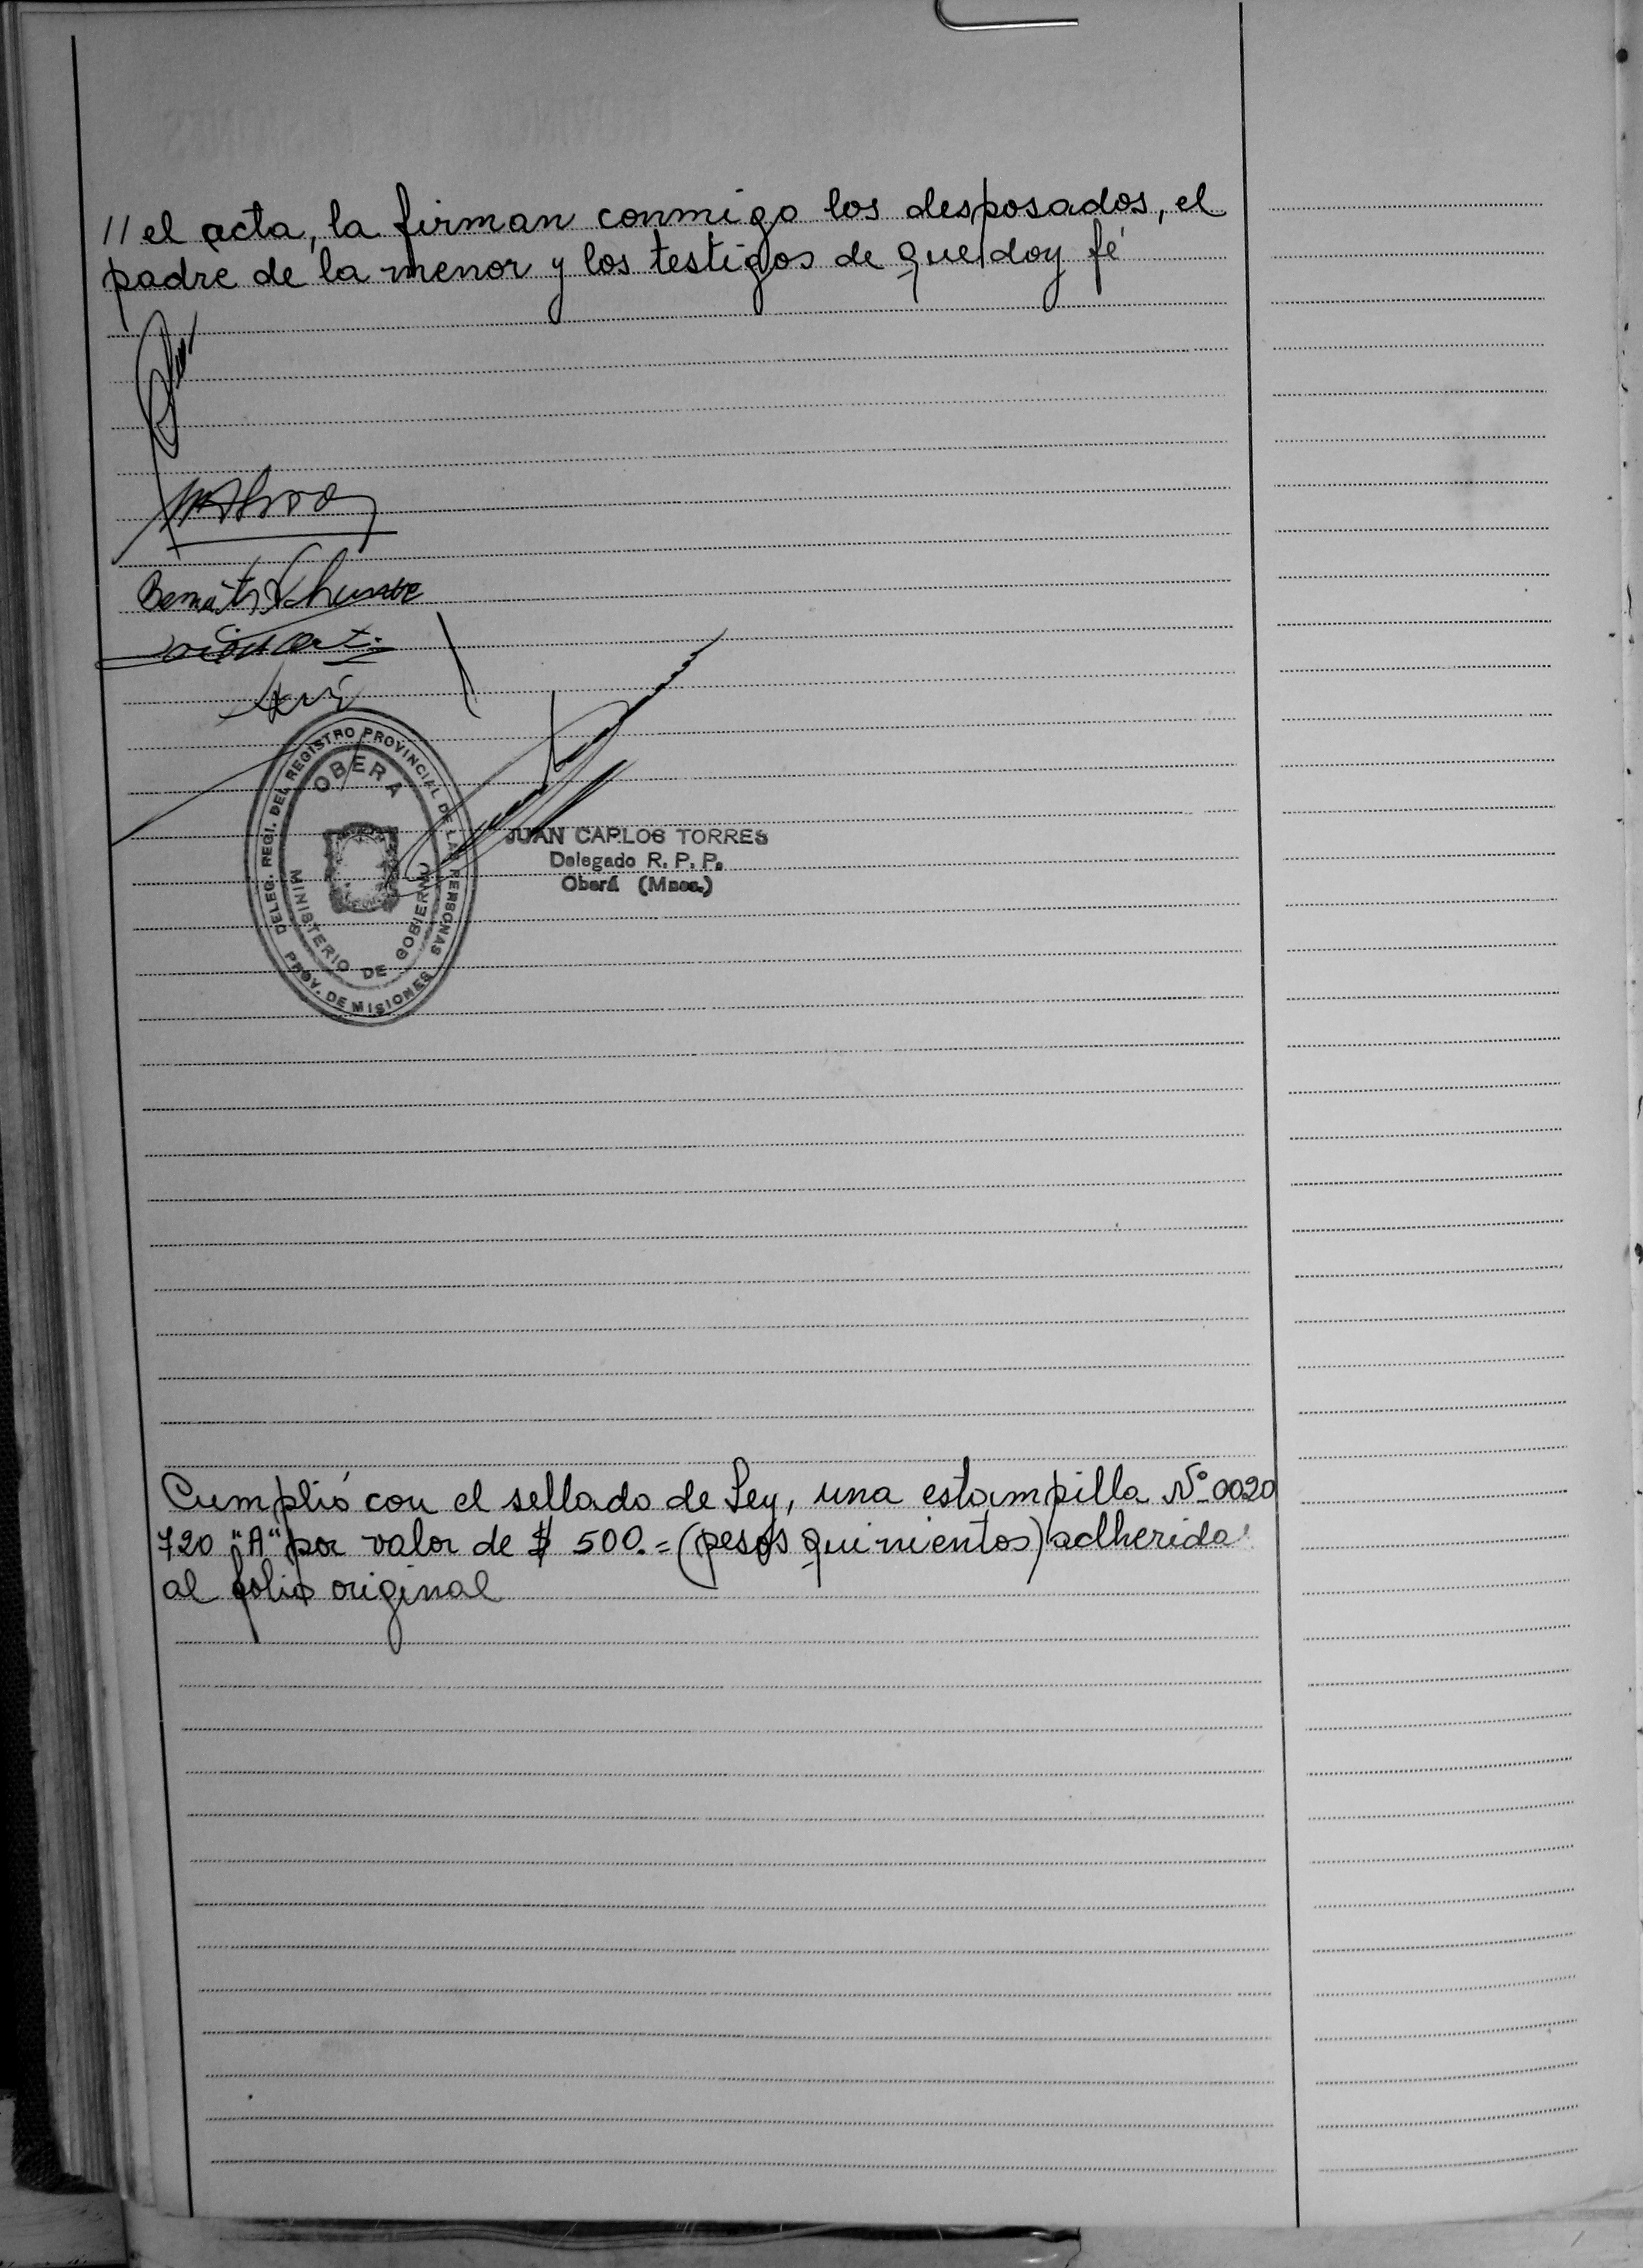 // el acta, la firman conmigo los desposados, el
padre de la menor y los testigos de que doy fé
DELEG. REGI. DEL REGISTRO PROVINCIAL DE LAS PERSONAS
OBERA
MINISTERIO DE GOBIERNO
PROV. DE MISIONES
JUAN CARLOS TORRES
Delegado R. P. P.
Oberá (Mnes.)
Cumplió con el sellado de Ley, una estampilla Nº 0020
720 "A" por valor de $ 500.= (pesos quinientos) adherida
al folio original